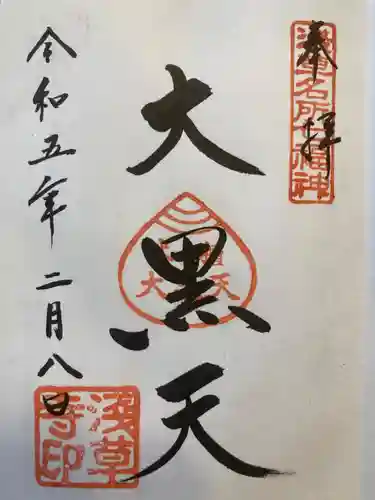 奉拝
浅草名所七福神
大黒天
大黒天
令和五年二月八日
浅草寺印